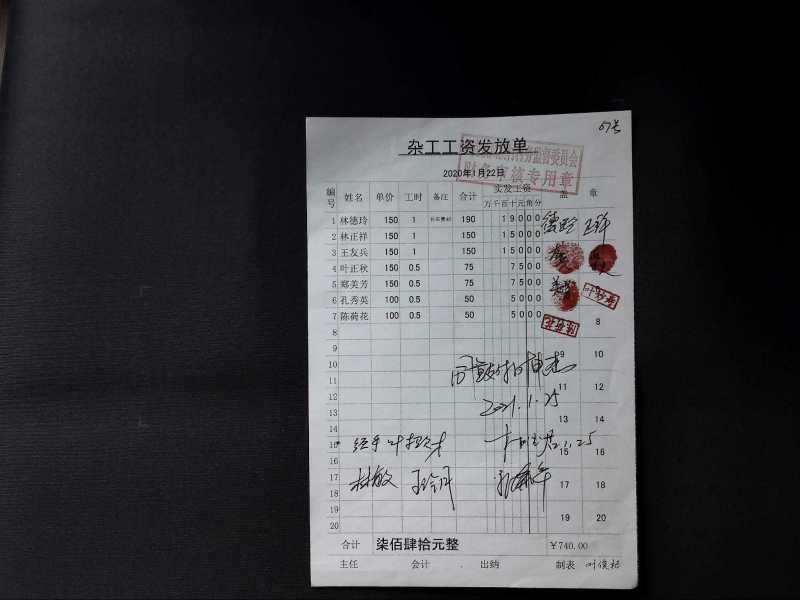 杂工工资发放单
财务审核专用章
2020年1月22日
编号 姓名 单价 工时 备注 合计 实发工资 盖 章
万 千 百 十 元 角 分
1 林德玲 150 1 190 1 9 0 0 0
2 林正祥 150 1 150 1 5 0 0 0
3 王友兵 150 1 150 1 5 0 0 0
4 叶正秋 150 0.5 75 7 5 0 0
5 郑美芳 150 0.5 75 7 5 0 0
6 孔秀英 100 0.5 50 5 0 0 0
7 陈荷花 100 0.5 50 5 0 0 0 8
8
9 9 10
10
11 11 12
12
2021.1.25
13 13 14
14
15 经手 15 16
16
17 林敏 17 18
18
19 19 20
20
合计 柒佰肆拾元整 ¥740.00
主任 会计 出纳 制表